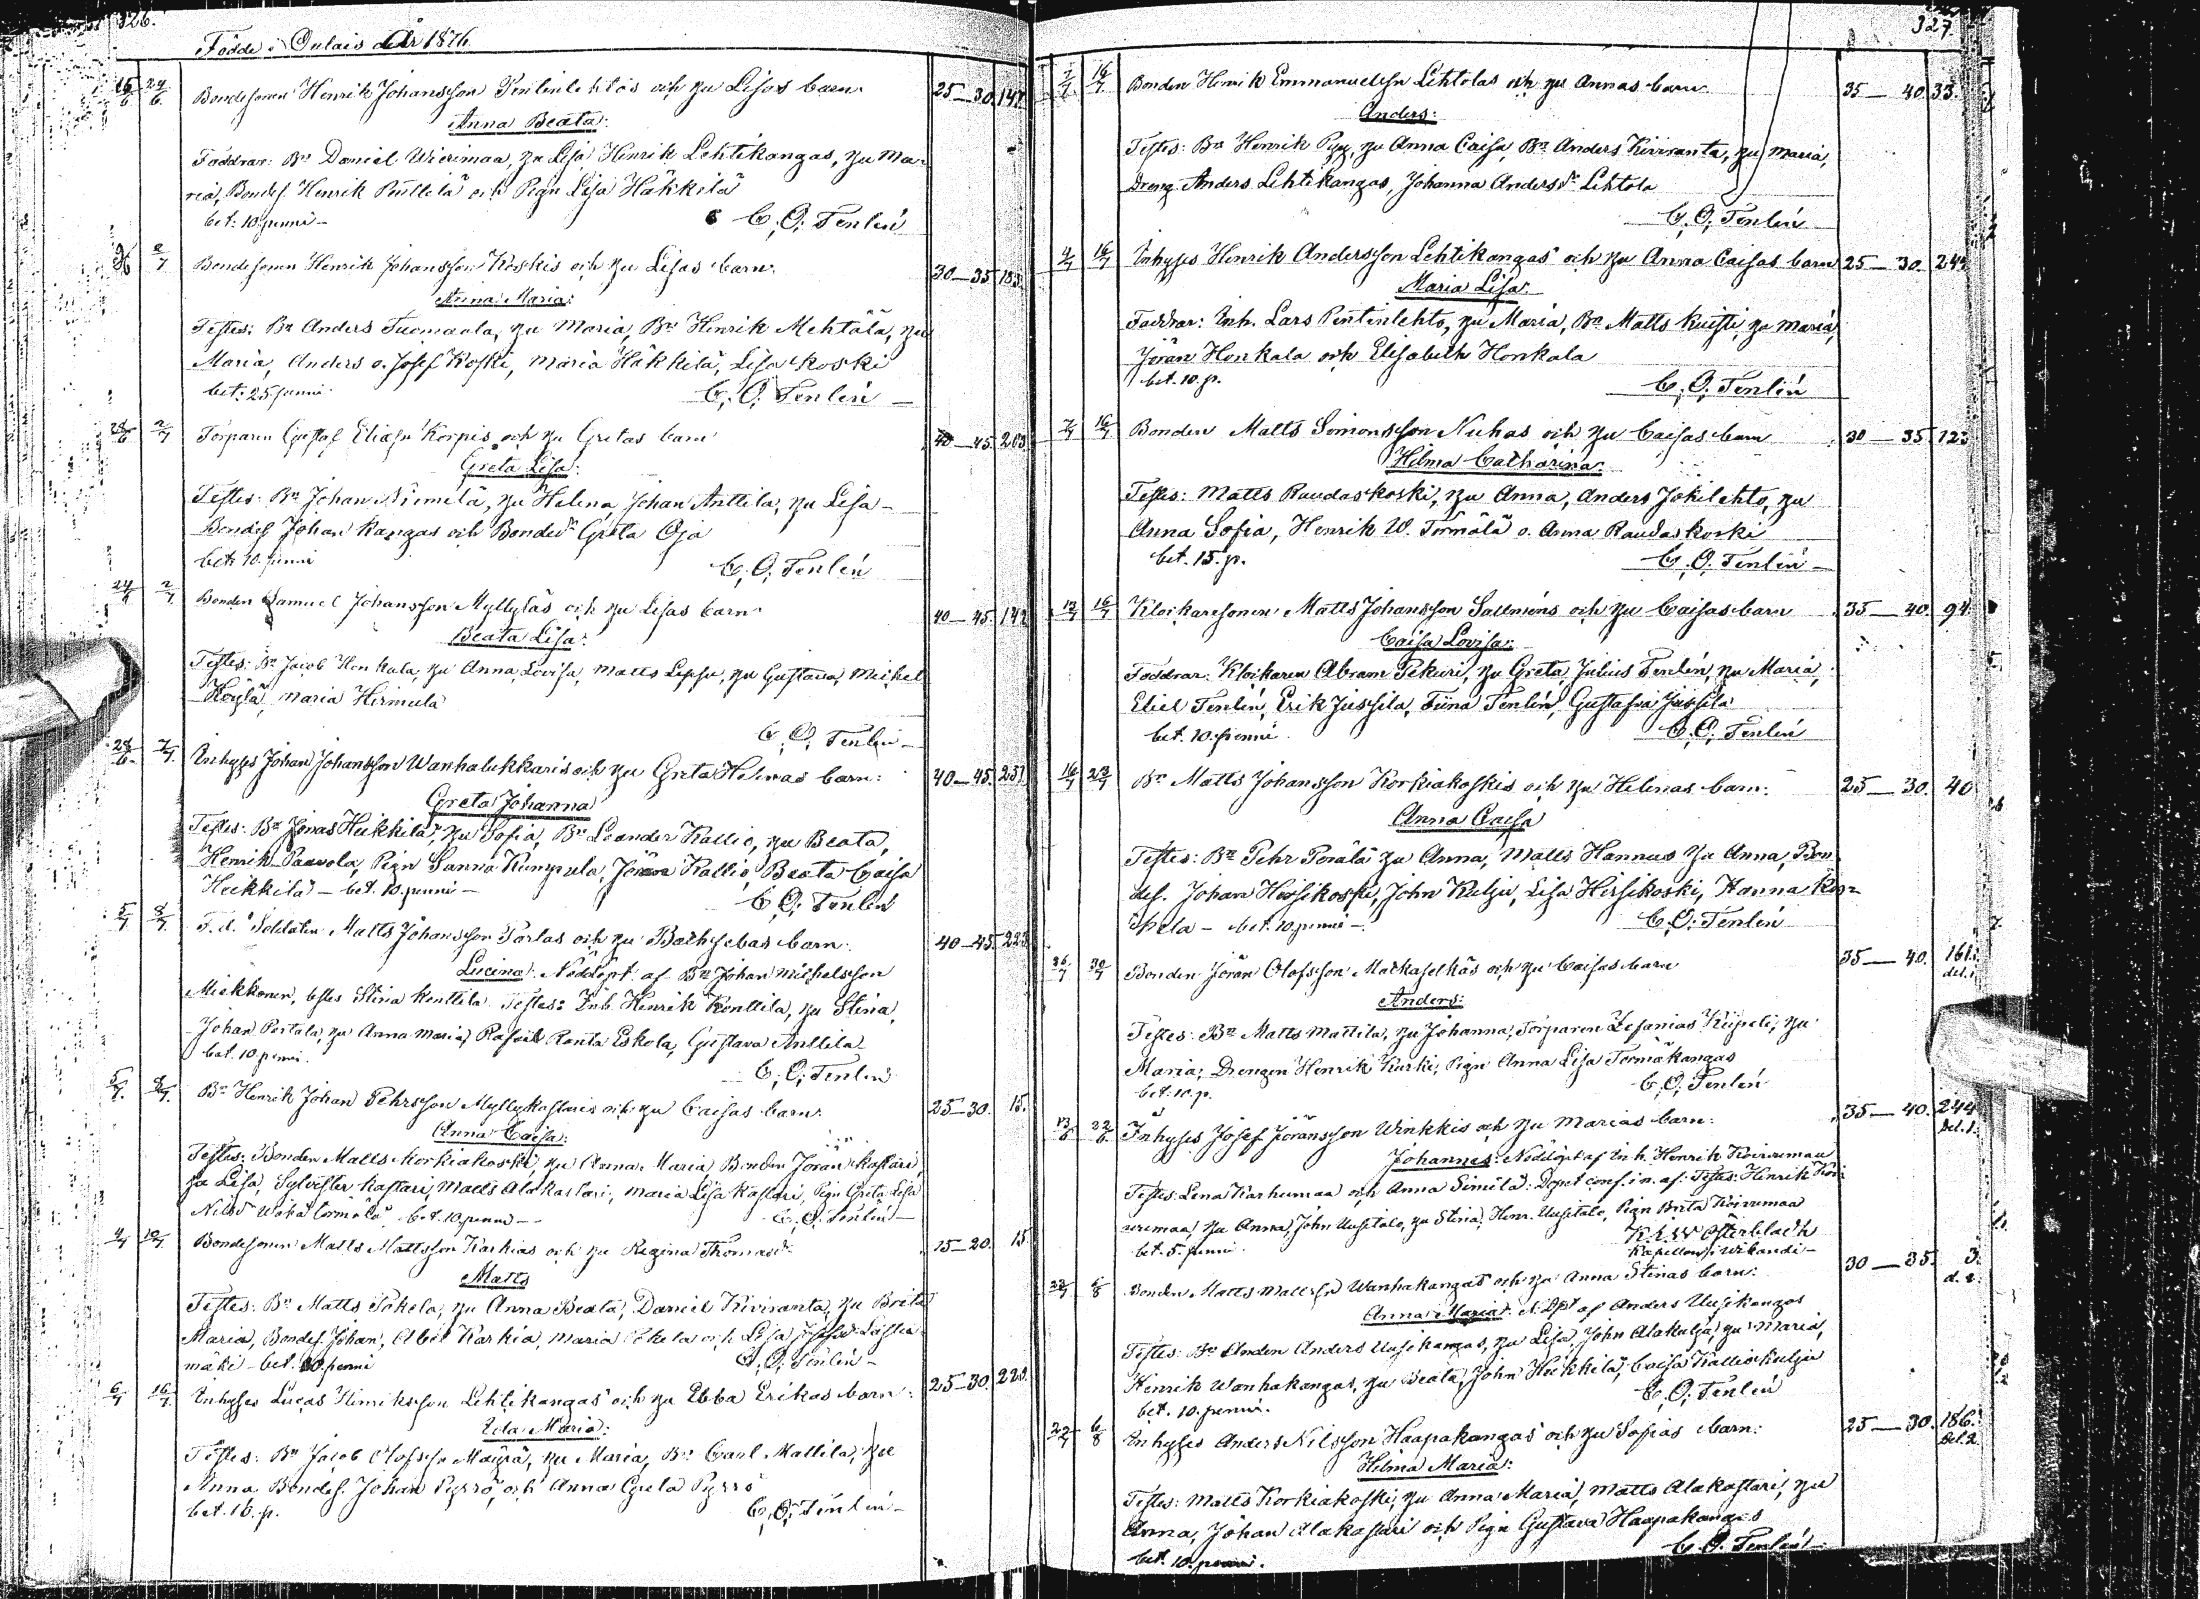 326.
Födde i Oulais år 1876
15/6 24/6 Bondesonen Henrik Johansson Pentinlehtos och hu Lisas barn 25—30. 142
Anna Beata:
Faddrar: Bn Daniel Wierimaa, hu Lisa Henrik Lehtikangas, hu Ma-
ria, Bondes. Henrik Puttilä och Pign Lisa Häkkilä
bet: 10 penni –
C. O. Tenlén
2/7 Bondesonen Henrik Johansson Koskis och hu Lisas barn. 30—35
Anna Maria:
Testes: Bn Anders Tuomaala, hu Maria, Bn Henrik Mehtälä, hu
Maria, Anders o. Josef Koski, Maria Häkkilä, Lisa Koski
bet: 25 penni
C. O. Tenlén –
2/7 Torparen Gustaf Eliasn Korpis och hu Gretas barn 40—45. 203
Greta Lisa:
Testes: Bn Johan Niemelä, hu Helena, Johan Anttila, hu Lisa –
Bondes Johan Kangas och Bonded. Greta Oja
bet: 10 penni
C. O. Tenlén
2/7 Bonden Samuel Johansson Myllyläs och hu Lisas barn 40—45. 142
Beata Lisa:
Testes: Bn Jacob Honkala, hu Anna Lovisa, Matts Leppu, hu Gustava, Michel
Köylä, Maria Hirmula
C. O. Tenlén –
28/6 2/7 Inhyses Johan Johansson Wanhalukkaris och hu Greta Helenas barn: 40—45. 231
Greta Johanna
Testes: Bn Jonas Heikkilä, hu Sofia, Bn Leander Kallio, hu Beata,
Henrik Paavola, Pign Sanna Kumpula, Jöran Kallio, Beata Caisa
Heikkilä – bet. 10 penni –
C. O. Tenlén
5/7 8/7 F. d. Soldaten Matts Johansson Portas och hu Bathsebas barn. 40—45 223
Lucina: Nöddöpt af Bn Johan Michelsson
Miekkonen, testes Stina Kenttilä. Testes: Inh. Henrik Kenttilä, hu Stina,
Johan Portala, hu Anna Maria, Rafael Ranta Eskola, Gustava Anttila
bet. 10 penni.
C. O. Tenlén
5/7. 8/7. Bn Henrik Johan Pehrsson Myllykastaris och hu Caisas barn. 25—30. 15.
Anna Caisa:
Testes: Bonden Matts Korkiakoski, hu Anna Maria, Bonden Jöran Kastari
hu Lisa, Sylvester Kastari, Matts Alakastari, Maria Lisa Kastari, Pign Greta Lisa
Nilsdr bet. 10 penni –
C. O. Tenlén –
Bondesonen Matts Mattsson Karkias och hu Regina Thomasdr 15—20. 15
Matts
Testes: Bn Matts Pokela, hu Anna Beata, Daniel Kiviranta, hu Brita
Maria, Bondes. Johan, Abel Karkia, Maria Pokela och Lisa
mäki – bet. 10 penni
C. O. Tenlén –
6/7 16/7. Inhyses Lucas Henriksson Lehtikangas och hu Ebba Erikas barn: 25—30. 220.
Ida Maria:
Testes: Bn Jacob Olofsson Mäyrä, hu Maria, Bn Carl Mattila, hu
Anna Bondes. Johan Pyrrö, och Anna Greta Pyrrö
bet. 16. p.
C. O. Tenlén –
327
2/7 16/7 Bonden Henrik Emmanuelsn Lehtolas och hu Annas barn. 35— 40 33.
Anders:
Testes: Bn Henrik Pyy, hu Anna Caisa, Bn Anders Kiviranta, hu Maria,
Dreng. Anders Lehtikangas, Johanna Andersdr Lehtola
C. O. Tenlén
16/7 Inhyses Henrik Andersson Lehtikangas och hu Anna Caisas barn 25— 30. 244
Maria Lisa:
Faddrar: Inh. Lars Pentinlehto, hu Maria, Bn Matts Kuisti, hu Maria,
Jöran Honkala och Elisabeth Honkala
bet. 10. p.
C. O. Tenlén
7/7 16/7 Bonden Matts Simonsson Nuhas och hu Caisas barn 30 — 35 123
Hilma Catharina:
Testes: Matts Raudaskoski, hu Anna, Anders Jokilehto, hu
Anna Sofia, Henrik W. Törmälä o. Anna Raudaskoski
bet. 15. p.
C. O. Tenlén –
12/7 16/7 Klockaresonen Matts Johansson Salmens och hu Caisas barn 35— 40. 94.
Caisa Lovisa:
Faddrar: Klockaren Abram Pekuri, hu Greta, Julius Tenlén, hu Maria,
Eliel Tenlén, Erik Jussila, Fiina Tenlén, Gustafva Jussila
bet. 10. penni.
C. O. Tenlén
16/7 23/7 Bn Matts Johansson Korkiakoskis och hu Helenas barn. 25— 30. 40
Anna Caisa
Testes: Bn Pehr Perälä hu Anna, Matts Hannus hu Anna, Bon-
des. Johan Hirsikoski, John Kulju, Lisa Hirsikoski, Hanna Kos-
kela – bet. 10 penni –
C. O. Tenlén
26/7 30/7 Bonden Jöran Olofsson Matkaselkäs och hu Caisas barn 35— 40. 161.
del. 1.
Anders:
Testes: Bn Matts Mattila, hu Johanna, Torparen Zefanias Kiipeli, hu
Maria; Drengen Henrik Kurki, Pign Anna Lisa Törmäkangas
bet: 10. p.
C. O. Tenlén
13/6 22/6 Inhyses Josef Jöransson Winkkis och hu Marias barn: 35— 40. 244
del. 1.
Johannes: Nöddöpt af Inh. Henrik Koiruman
Testes: Lena Karhumaa och Anna Similä. Dopet conf. i n. af: Testes: Henrik Koi-
urumaa, hu Anna, John Uusitalo, hu Stina, Henr. Uusitalo, Pign Brita Koirumaa
bet. 5. penni.
K. L. W. Österbladh
Kapellan i Wihandi –
6/8 Bonden Matts Mattsson Wanhakangas och hu Anna Stinas barn: 30 —35. 3.
d. 2.
Anna Maria: N. Dpt af Anders Uusikangas
Testes: Bn Anders Uusikangas, hu Lisa, John Alakulju, hu Maria,
Henrik Wanhakangas, hu Beata, John Heikkilä, Caisa Kalliokulju
bet. 10. penni.
C. O. Tenlén
6/8 Inhyses Anders Nilsson Haapakangas och hu Sofias barn: 25— 30. 186.
del. 2.
Hilma Maria:
Testes: Matts Korkiakoski, hu Anna Maria, Matts Alakastari, hu
Anna, Johan Alakastari och Pign Gustava Haapakangas
bet. 10. penni.
C. O. Tenlén